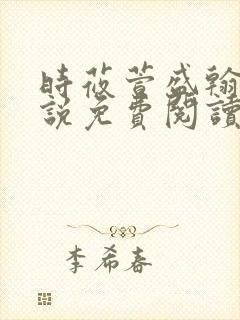 時莜萱盛翰
說免費閱讀
李希春